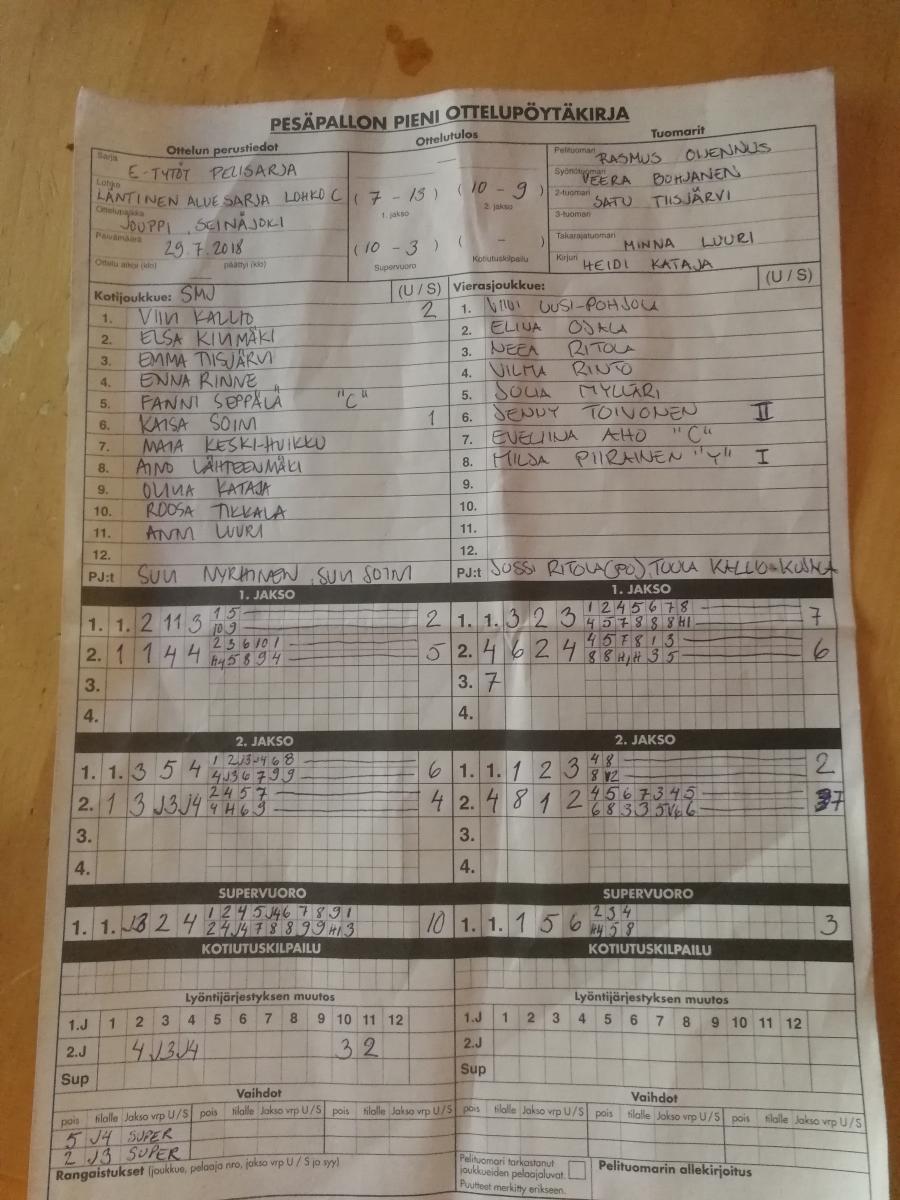 PESÄPALLON PIENI OTTELUPÖYTÄKIRJA
Ottelun perustiedot Ottelutulos Tuomarit
Sarja E-TYTÖT PELISARJA
Lohko LÄNTINEN ALUESARJA LOHKO C
Ottelupaikka JOUPPI, SEINÄJOKI
Päivämäärä 29.7.2018
Ottelu alkoi (klo) päättyi (klo)
(7 - 13) (10 - 9)
1. jakso 2. jakso
(10 - 3) ( - )
Supervuoro Kotiutuskilpailu
Pelituomari RASMUS OJENNUS
Syöttötuomari VEERA BOHJANEN
2-tuomari SATU TIISJÄRVI
3-tuomari
Takarajatuomari MINNA LUURI
Kirjuri HEIDI KATAJA
Kotijoukkue: SMJ (U / S)
1. VIIVI KALLIO 2
2. ELSA KIVIMÄKI
3. EMMA TIISJÄRVI
4. ENNA RINNE
5. FANNI SEPPÄLÄ "C"
6. KAISA SOINI 1
7. MAIJA KESKI-HUIKKU
8. AINO LÄHTEENMÄKI
9. OLIVIA KATAJA
10. ROOSA TIKKALA
11. ANNI LUURI
12.
PJ:t SUVI NYRHINEN, SUVI SOINI
Vierasjoukkue: (U / S)
1. VIIVI UUSI-POHJOLA
2. ELINA OJALA
3. NEEA RITOLA
4. VILMA RINTO
5. JULIA MYLLÄRI
6. JENNY TOIVONEN II
7. EVELIINA AHO "C"
8. MILJA PIIRAINEN "Y" I
9.
10.
11.
12.
PJ:t JUSSI RITOLA (PO), TUULA KALLIO-KUJALA
1. JAKSO
1. 1. 2 11 3 1 5 2
10 9
2. 1 1 4 4 2 3 6 10 1 5
H4 5 8 9 4
3.
4.
1. JAKSO
1. 1. 3 2 3 1 2 4 5 6 7 8 7
4 5 7 8 8 8 H1
2. 4 6 2 4 4 5 7 8 1 3 6
8 8 H1 H 3 5
3. 7
4.
2. JAKSO
1. 1. 3 5 4 1 2 J3 J4 6 8 6
4 J3 6 7 9 9
2. 1 3 J3 J4 2 4 5 7 4
4 H 6 9
3.
4.
2. JAKSO
1. 1. 1 2 3 4 8 2
8 V2
2. 4 8 1 2 4 5 6 7 3 4 5 7
6 8 3 3 5 V6 6
3.
4.
SUPERVUORO
1. 1. J3 2 4 1 2 4 5 J4 6 7 8 9 1 10
2 4 J4 7 8 8 9 9 H1 3
SUPERVUORO
1. 1. 1 5 6 2 3 4 3
H4 5 8
KOTIUTUSKILPAILU
KOTIUTUSKILPAILU
Lyöntijärjestyksen muutos
1.J 1 2 3 4 5 6 7 8 9 10 11 12
2.J 4 J3 J4 3 2
Sup
Lyöntijärjestyksen muutos
1.J 1 2 3 4 5 6 7 8 9 10 11 12
2.J
Sup
Vaihdot
pois tilalle Jakso vrp U / S pois tilalle Jakso vrp U / S pois tilalle Jakso vrp U / S
5 J4 SUPER
2 J3 SUPER
Vaihdot
pois tilalle Jakso vrp U / S pois tilalle Jakso vrp U / S pois tilalle Jakso vrp U / S
Rangaistukset (joukkue, pelaaja nro, jakso vrp U / S ja syy)
Pelituomari tarkastanut
joukkueiden pelaajaluvat.
Puutteet merkitty erikseen.
Pelituomarin allekirjoitus